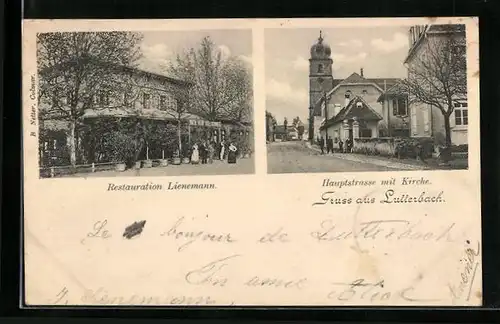 B Netter, Colmar.
Restauration Lienemann.
Hauptstrasse mit Kirche.
Gruss aus Lutterbach.
Le bonjour de Lutterbach
Ton amie
Lienemann